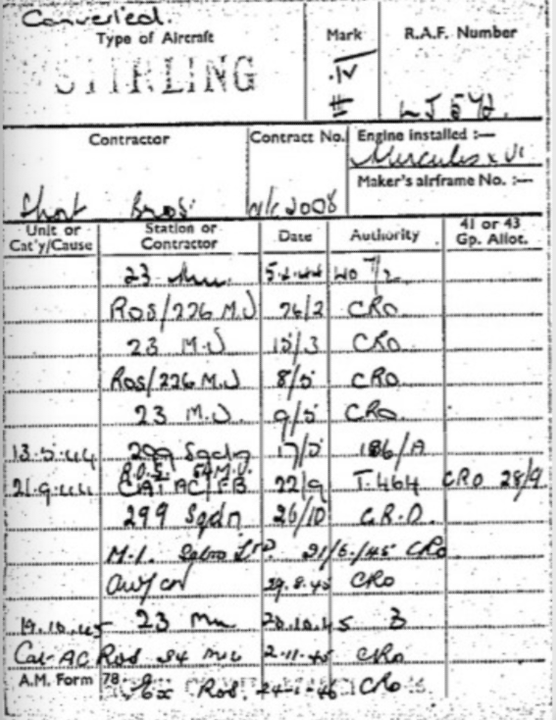 Converted.
Type of Aircraft Mark R.A.F. Number
STIRLING IV LJ
Contractor Contract No. Engine installed :—
Hercules VI
Maker's airframe No. :—
Short Bros
Unit or Cat'y/Cause Station or Contractor Date Authority 41 or 43 Gp. Allot.
23 Mu 5.2.44 40 7/2
ROS/226 M.U 26/2 CRO
23 M.U 13/3 CRO
ROS/226 M.U 8/5 CRO
23 M.U. 9/5 CRO
13.5.44 299 Sqdn 17/5 186/A
R.O.S. 54 M.U.
21.9.44 CAT AC/FB 22/9 T.464 CRO 28/9
299 Sqdn 26/10 C.R.D.
M.I. 21/6/45 CRO
AW/CN 29.8.45 CRO
19.10.45 23 Mu 20.10.45 3
Cat AC Ros 34 Mu 2.11.45 CRO
A.M. Form 78 Ex Ros. 24-1-46 CRO